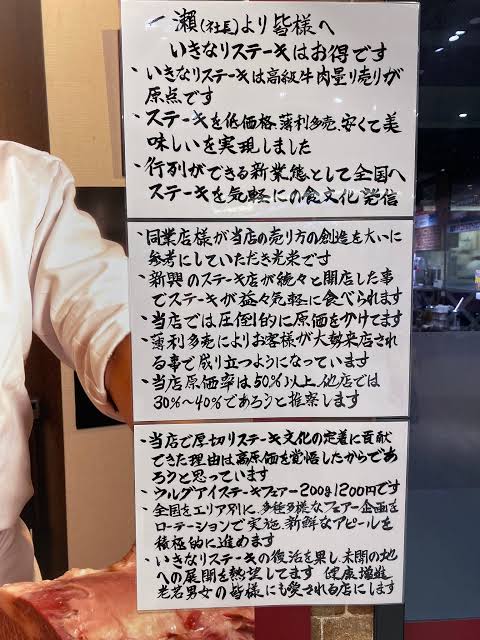 一瀬(社長)より皆様へ
いきなりステーキはお得です
・いきなりステーキは高級牛肉量り売りが
原点です
・ステーキを低価格、薄利多売、安くて美
味しいを実現しました
・行列ができる新業態として全国へ
ステーキを気軽にの食文化発信
・同業店様が当店の売り方の創造を大いに
参考にしていただき光栄です
・新興のステーキ店が続々と開店した事
でステーキが益々気軽に食べられます
・当店では圧倒的に原価をかけてます
・薄利多売によりお客様が大勢来店され
る事で成り立つようになっています
・当店原価率は50%以上、他店では
30%~40%であろうと推察します
・当店で厚切りステーキ文化の定着に貢献
できた理由は高原価を覚悟したからであ
ろうと思っています
・ウルグアイステーキフェアー200g1200円です
・全国をエリア別に、多種多様なフェアー企画を
ローテーションで実施、新鮮なアピールを
積極的に進めます
・いきなりステーキの復活を果し、未開の地
への展開を熱望してます 健康増進
老若男女の皆様にも愛される店にします